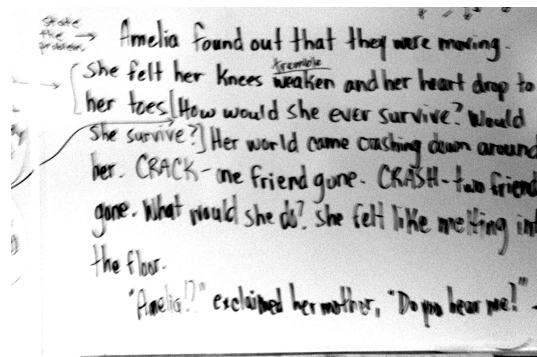 State
the →
problem
Amelia found out that they were moving.
She felt her knees weaken and her heart drop to
tremble
her toes[How would she ever survive? Would
she survive?] Her world came crashing down around
her. CRACK-one friend gone. CRASH-two friend
gone. What would she do? She felt like melting int
the floor.
"Amelia!?" exclaimed her mother, "Do you hear me!"